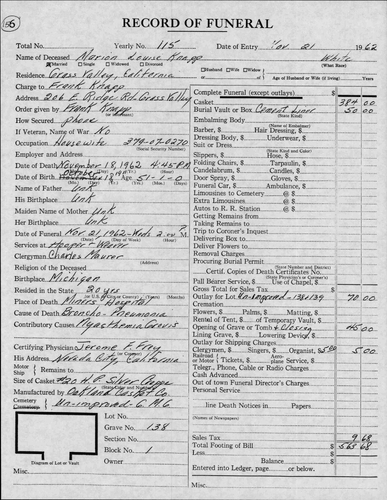 56
RECORD OF FUNERAL
Total No. Yearly No. 115 Date of Entry Nov. 21 1962
Name of Deceased Marion Louise Knapp White
Married Single Widowed Divorced (What Race)
Residence Grass Valley, California Husband Wife Widow of
Charge to Frank Knapp Age of Husband or Wife (if living) Years
Address 206 E. Ridge Rd. Grass Valley
Order given by Frank Knapp
How Secured phone
If Veteran, Name of War No
Occupation Housewife 379-07-0270
(Social Security Number)
Employer and Address
Date of Death November 18, 1962 4:45 P.M.
Date of Birth 18 Age 51-1-0
Name of Father Unk
His Birthplace Unk
Maiden Name of Mother Unk
Her Birthplace Unk
Date of Funeral Nov 21, 1962-Weds. 2
Services at Hooper-Weaver
Clergyman Charles Maurer
Religion of the Deceased
Birthplace Michigan
Resided in the State 20 years
Place of Death Miners Hospital
Cause of Death Broncho-Pneumonia
Contributory Causes Myasthenia Gravis
Certifying Physician Jerome F. Frey
His Address Nevada City, California
Motor
Ship Remains to
Size of Casket #20 Silver
Manufactured by Oakland Casket Co.
Cemetery Un-improved-G.M.C.
Lot No.
Grave No. 138
Section No.
Block No. 1
Owner
Diagram of Lot or Vault
Misc.
Complete Funeral (except outlays)
Casket 384 00
Burial Vault or Box Cement Liner 50 00
(State Kind)
Embalming Body
(Name of Embalmer)
Barber, $ Hair Dressing, $
Dressing Body, $ Underwear, $
Suit or Dress
(State Kind and Color)
Slippers, $ Hose, $
Folding Chairs, $ Tarpaulin, $
Candelabrum, $ Candles, $
Door Spray, $ Gloves, $
Funeral Car, $ Ambulance, $
Limousines to Cemetery @ $
Extra Limousines @ $
Autos to R. R. Station @ $
Getting Remains from
Taking Remains to
Trip to Coroner's Inquest
Delivering Box to
Deliver Flowers to
Removal Charges
Procuring Burial Permit
(State Number and District)
Certif. Copies of Death Certificates No.
Pall Bearer Service, $ Use of Chapel, $
Gross Total for Sales Tax
Outlay for Lot Un-improved-138&139 70 00
Cremation
Flowers, $ Palms, $ Matting, $
Rental of Tent, $ of Temporary Vault, $
Opening of Grave or Tomb & Closing 45 00
Lining Grave, $ Lowering Device, $
Outlay for Shipping Charges
Clergymen, $ Singers, $ Organist, $ 5.00 5 00
Railroad
or Motor Tickets, $ Aero. Service, $
Telegr., Phone, Cable or Radio Charges
Cash Advanced
Out of town Funeral Director's Charges
Personal Service
line Death Notices in Papers
(Names of Newspapers)
Sales Tax 9 68
Total Footing of Bill $ 563 68
Less $
Balance $
Entered into Ledger, page or below.
Misc.